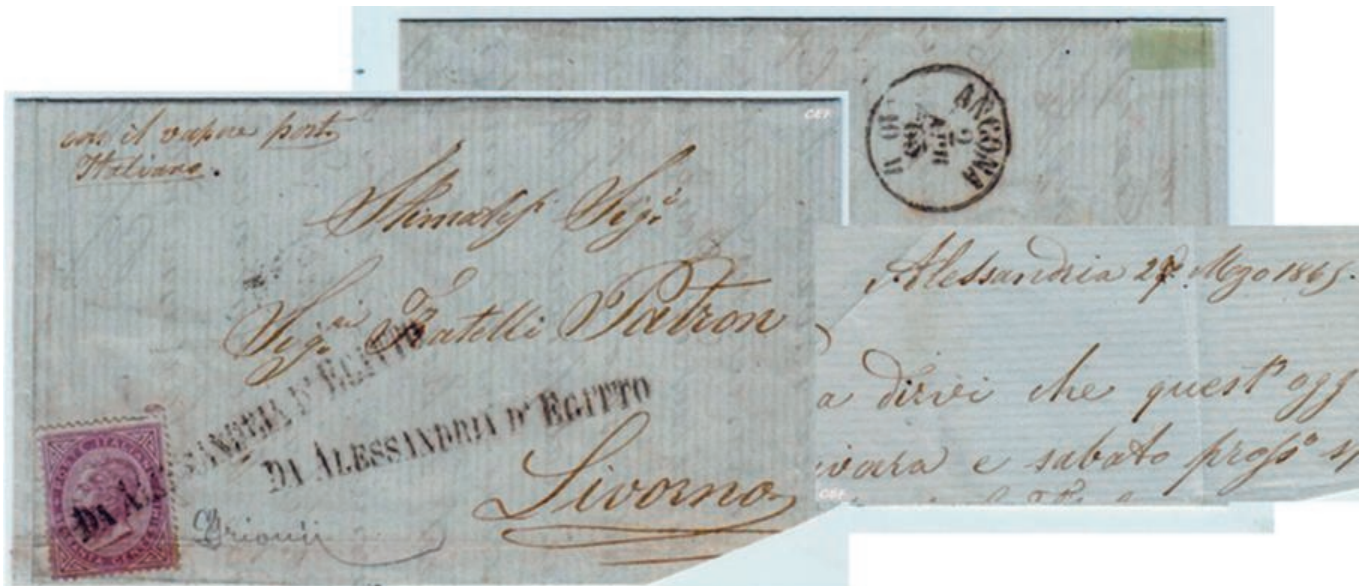 con il vapore post.
Italiano.
Sigi
Sigri Fratelli Patron
DA ALESSANDRIA D'EGITTO
DA ALESSANDRIA D'EGITTO
Livorno
ANCONA
9
APR
65
10
CEF
Alessandria 27 Mzo 1865.
a dirvi che quest' ogg
e sabato
CEF